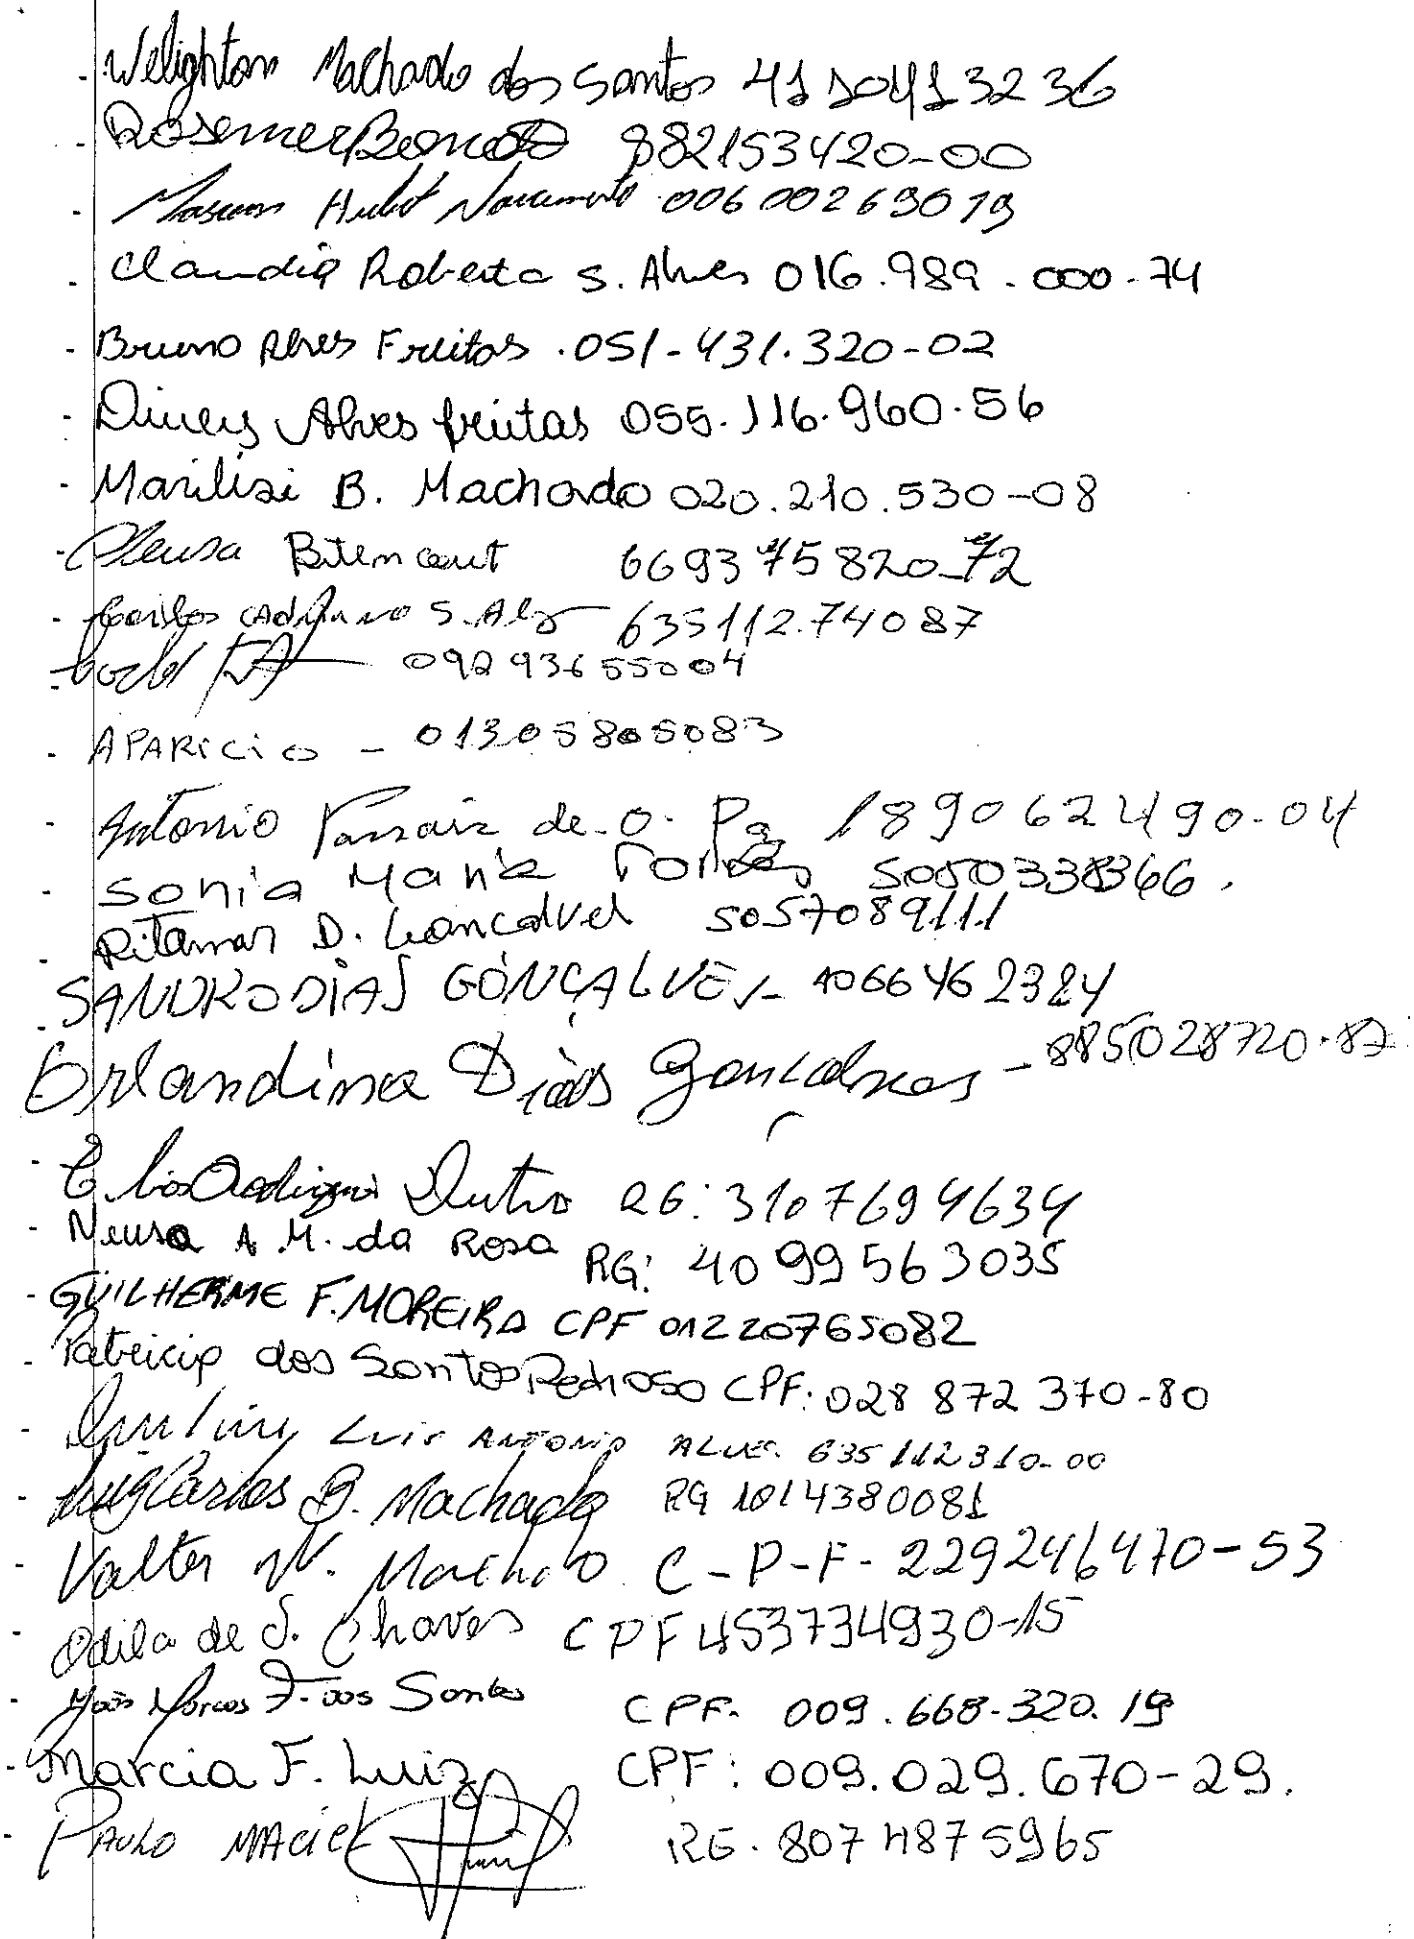 - Welighton Machado dos Santos 4110413236
- Rosemer 882153420-00
- 00600263019
- Claudia Roberta S. Alves 016.989.000-74
- Bruno Alves Freitas .051-431.320-02
- Alves freitas 055.116.960.56
- Marilisi B. Machado 020.210.530-08
- Bitencourt 669375820-72
- Carlos S. 635112.74087
- 09293655004
- APARICIO - 01305805083
- Antonio de O. 189062490-04
- Sonia Maria 5050338366.
- Ritamar D. Goncalvel 5057089111
- SANDRO DIAS GONÇALVES - 1066462324
Orlandina Dias Gonçalves - 885028720.87
- Dutra RG: 3107694634
- Neusa A. M. da Rosa RG: 4099563035
- GUILHERME F. MOREIRA CPF 01220765082
- Patricia dos Santos Pedroso CPF: 028 872 370-80
- Luis Antonio Alves 635112310-00
- Luiz Carlos B. Machado RG 1014380081
- Valter N. Machado C-P-F- 229246470-53
- Odila de S. Chaves CPF 453734930-15
- Marcos F. dos Santos CPF. 009.668-320.19
- Marcia F. Luiz CPF: 009.029.670-29.
- PAULO MACIEL RG. 8074875965